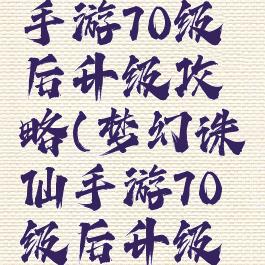 手游70级
后升级攻
略(梦幻诛
仙手游70
级后升级